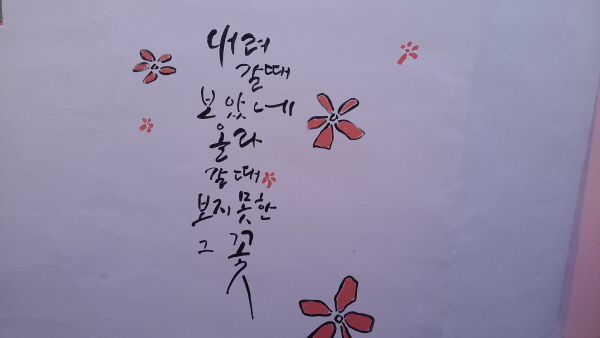 내려
갈때
보았네
올라
갈때
보지못한
그 꽃